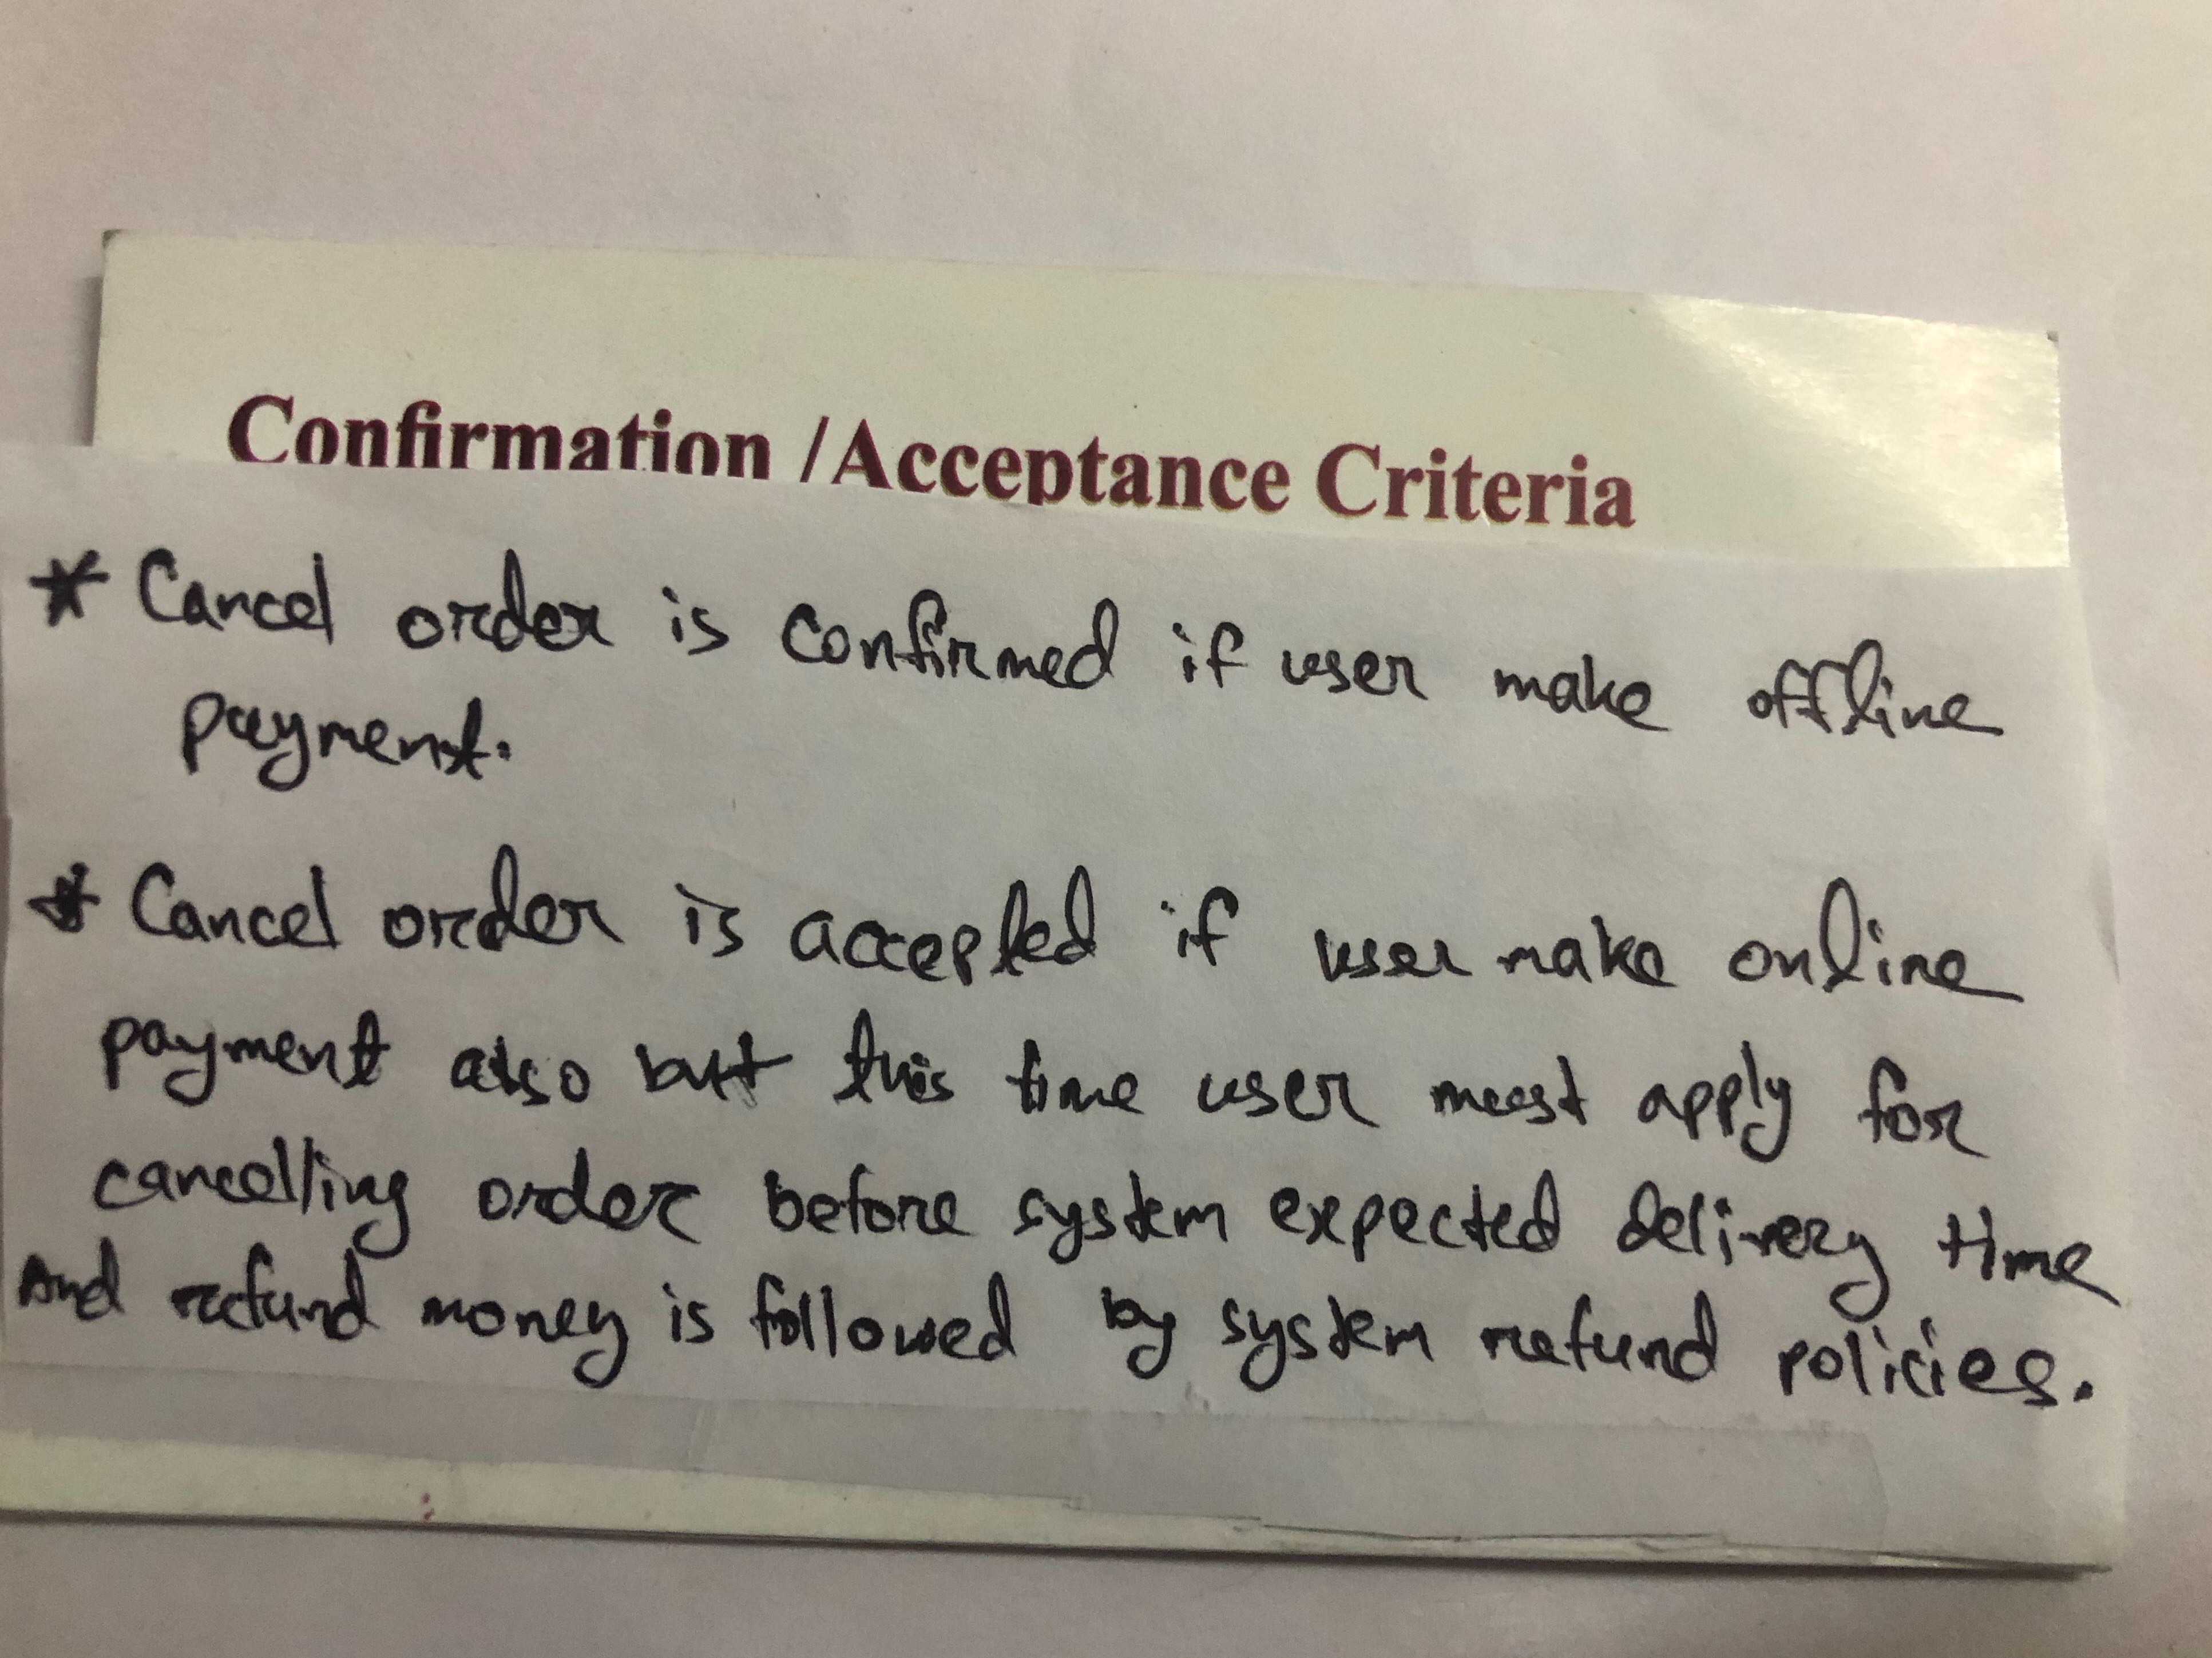 Confirmation /Acceptance Criteria
* Cancel order is confirmed if user make offline
payment.
* Cancel order is accepted if user make online
payment also but this time user must apply for
cancelling order before system expected delivery time
And refund money is followed by system refund policies.